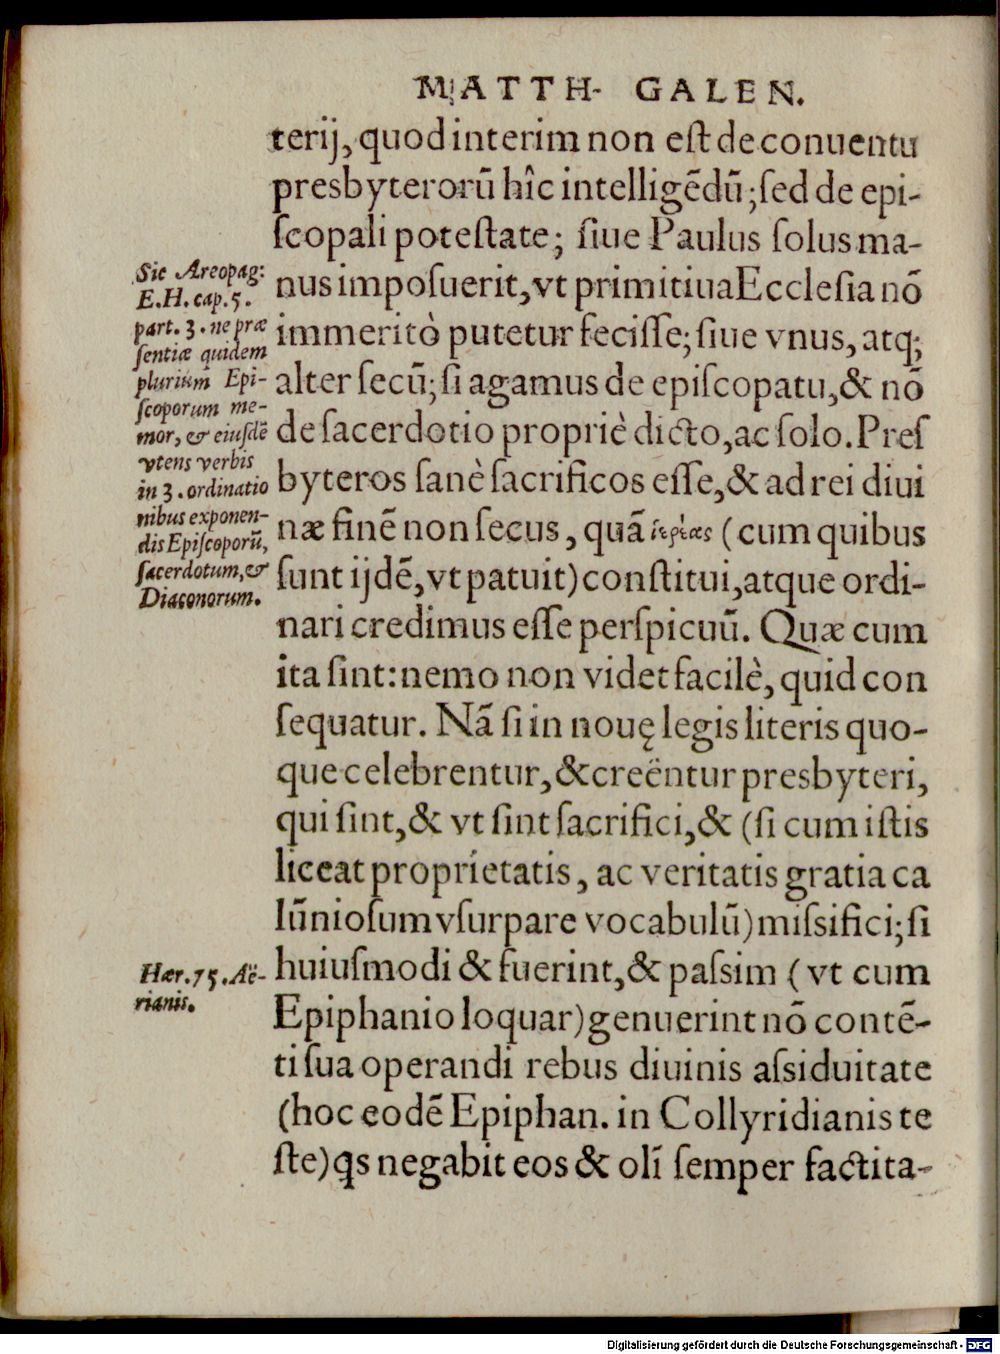 MATTH. GALEN.
terij, quod interim non eſt de conuentu
presbyterorū hîc intelligēdū; ſed de epi-
ſcopali poteſtate; ſiue Paulus ſolus ma-
nus impoſuerit, vt primitiua Eccleſia nō
immeritò putetur feciſſe; ſiue vnus, atq;
alter ſecū; ſi agamus de epiſcopatu, & nō
de ſacerdotio propriè dicto, ac ſolo. Preſ
byteros ſanè ſacrificos eſſe, & ad rei diui
næ finē non ſecus, quā ἱερέας (cum quibus
ſunt ijdē, vt patuit) conſtitui, atque ordi-
nari credimus eſſe perſpicuū. Quæ cum
ita ſint: nemo non videt facilè, quid con
ſequatur. Nā ſi in nouę legis literis quo-
que celebrentur, & creëntur presbyteri,
qui ſint, & vt ſint ſacrifici, & (ſi cum iſtis
liceat proprietatis, ac veritatis gratia ca
lūnioſum vſurpare vocabulū) miſſifici; ſi
huiuſmodi & fuerint, & paſsim (vt cum
Epiphanio loquar) genuerint nō contē-
ti ſua operandi rebus diuinis aſsiduitate
(hoc eodē Epiphan. in Collyridianis te
ſte) qs negabit eos & olī ſemper factita-
Sic Areopag:
E.H. cap. 5.
part. 3. ne præ
ſentiæ quidem
plurium Epi-
ſcoporum me-
mor, & eiuſdē
vtens verbis
in 3. ordinatio
nibus exponen-
dis Epiſcoporū,
ſacerdotum, &
Diaconorum.
Hær. 75. Aë-
rianis.
Digitalisierung gefördert durch die Deutsche Forschungsgemeinschaft - DFG